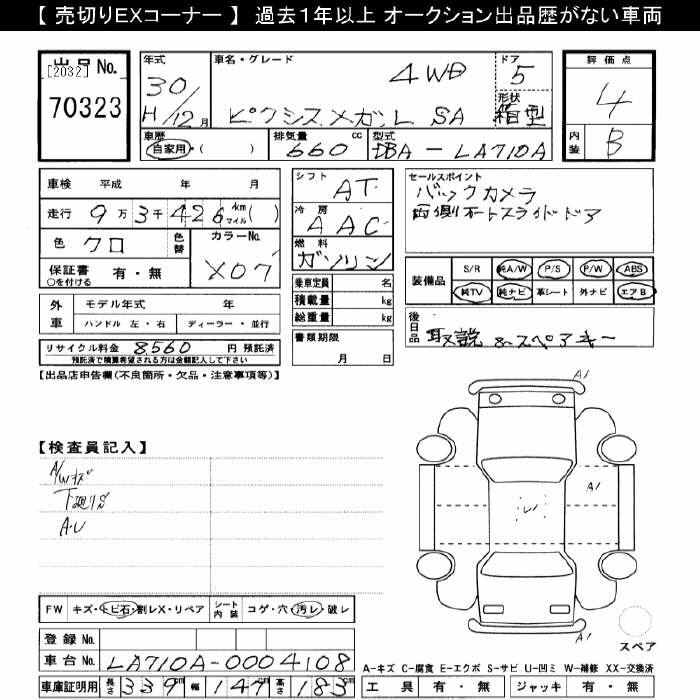 【 売切りEXコーナー 】 過去１年以上 オークション出品歴がない車両
出品 No.
[2032]
70323
年式
30/
H/12月
車名・グレード
4WD
ピクシスメガ L SA
ドア
5
形状
箱型
評価点
4
内装
B
車歴
自家用・( )
排気量 cc
660
型式
DBA-LA710A
車検 平成 年 月
走行 9万3千426 km マイル( )
色 クロ 色替
カラーNo.
X07
保証書 有・無
○を付ける
外車
モデル年式 年
ハンドル 左・右 ディーラー・並行
リサイクル料金 8560 円 預託済
預託済で積算希望される方は金額記入して下さい
シフト
AT
冷房
AAC
燃料
ガソリン
乗車定員 名
積載量 kg
総重量 kg
書類期限
月 日
セールスポイント
バックカメラ
両側オートスライドドア
装備品
S/R 純A/W P/S P/W ABS
純TV 純ナビ 革シート 外ナビ エアB
後日品
取説 &スペアキー
【出品店申告欄(不良箇所・欠品・注意事項等)】
【検査員記入】
A/Wキズ
下廻りS
A・U
A1
A1
U1
A1
スペア
FW キズ・トビ石・割レX・リペア
シート内装 コゲ・穴・汚レ・破レ
登録 No.
車台 No. LA710A-0004108
車庫証明用 長さ 339cm 幅 147cm 高さ 183cm
A－キズ C－腐食 E－エクボ S－サビ U－凹ミ W－補修 XX－交換済
工具 有・無 ジャッキ 有・無